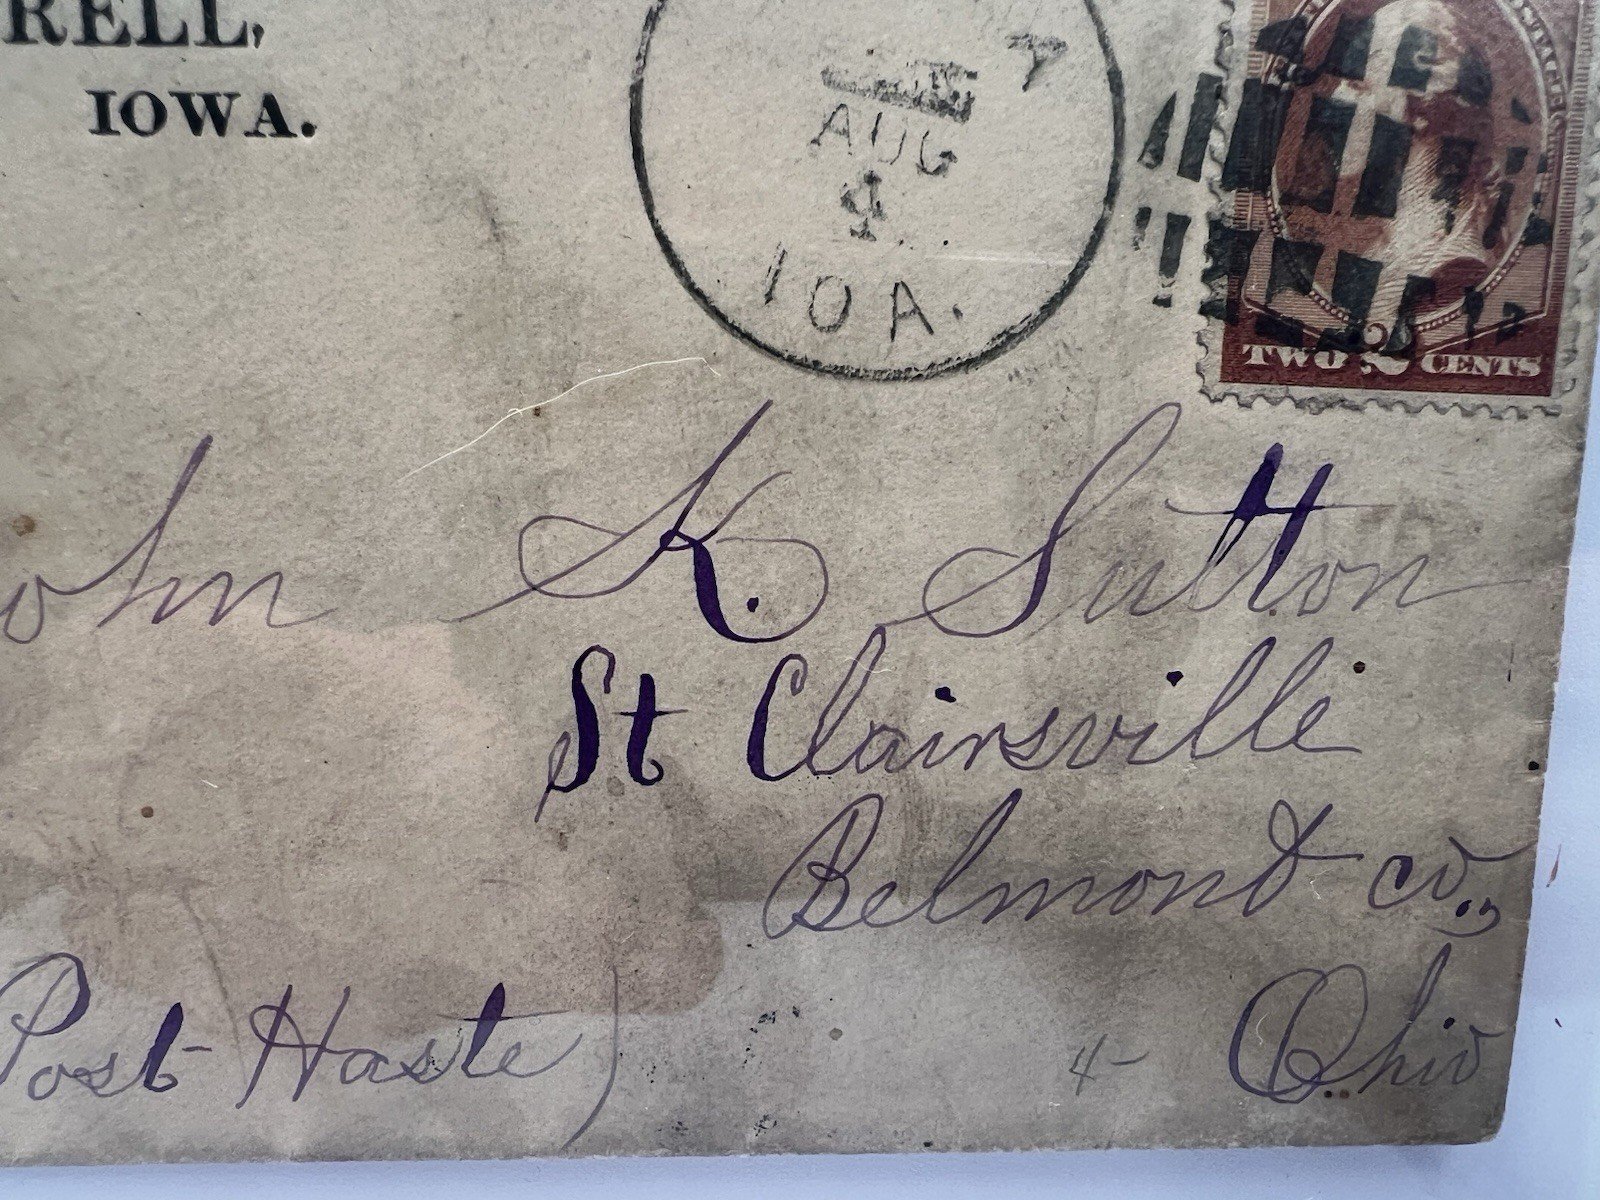 RELL,
IOWA.
AUG
4
IOA.
POSTAGE
TWO 2 CENTS
ohn K. Sutton
St Clairsville
Belmont co.,
Post Haste)
4 Ohio